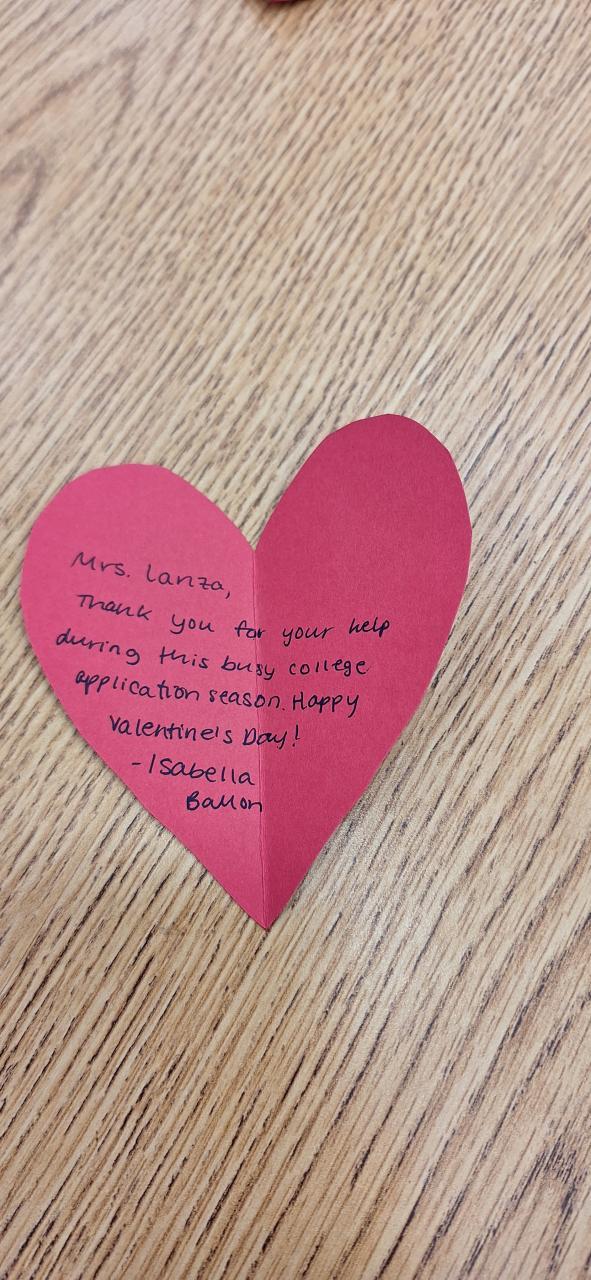 Mrs. Lanza,
Thank you for your help
during this busy college
application season. Happy
Valentine's Day!
-Isabella
Ballon